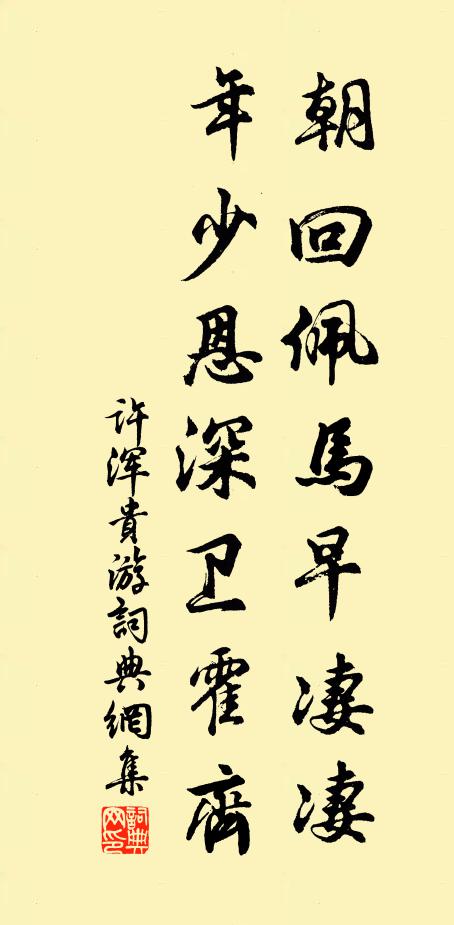 朝回佩馬早凄凄
年少恩深卫霍齊
许浑貴游詞典網集
詞典网印